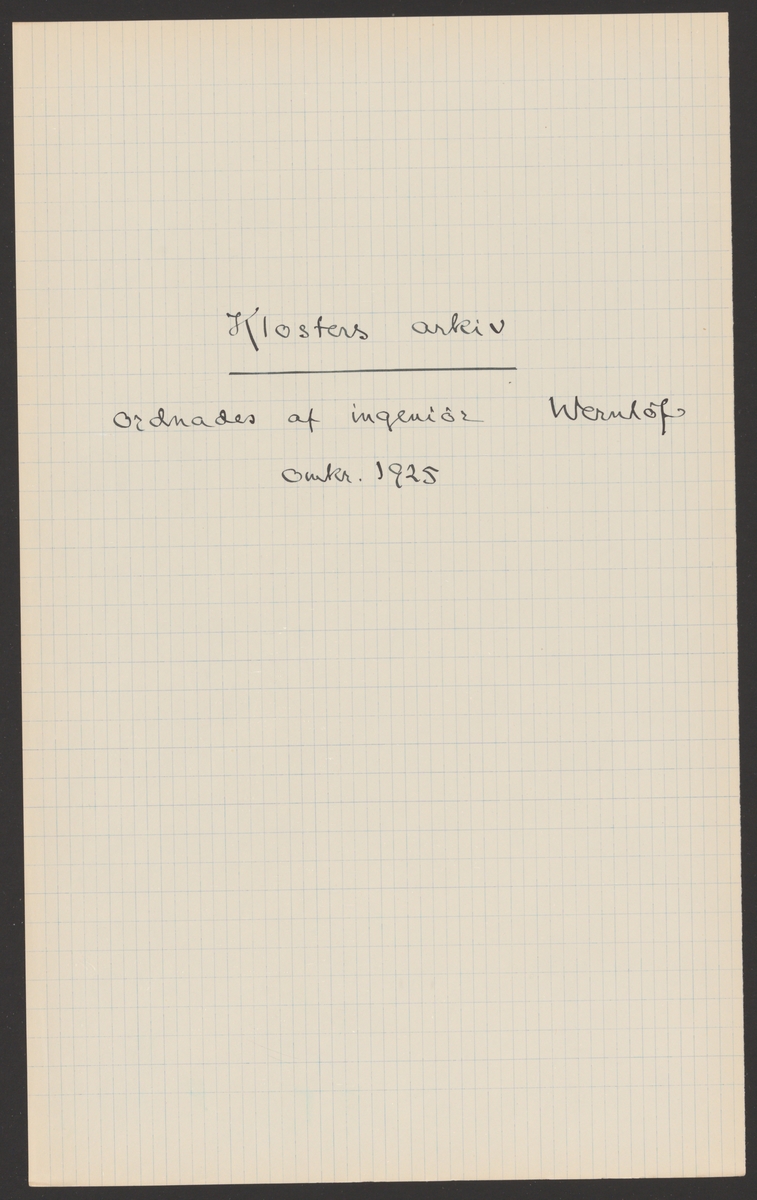 Klosters arkiv
ordnades af ingeniör Wernlöf
omkr. 1925